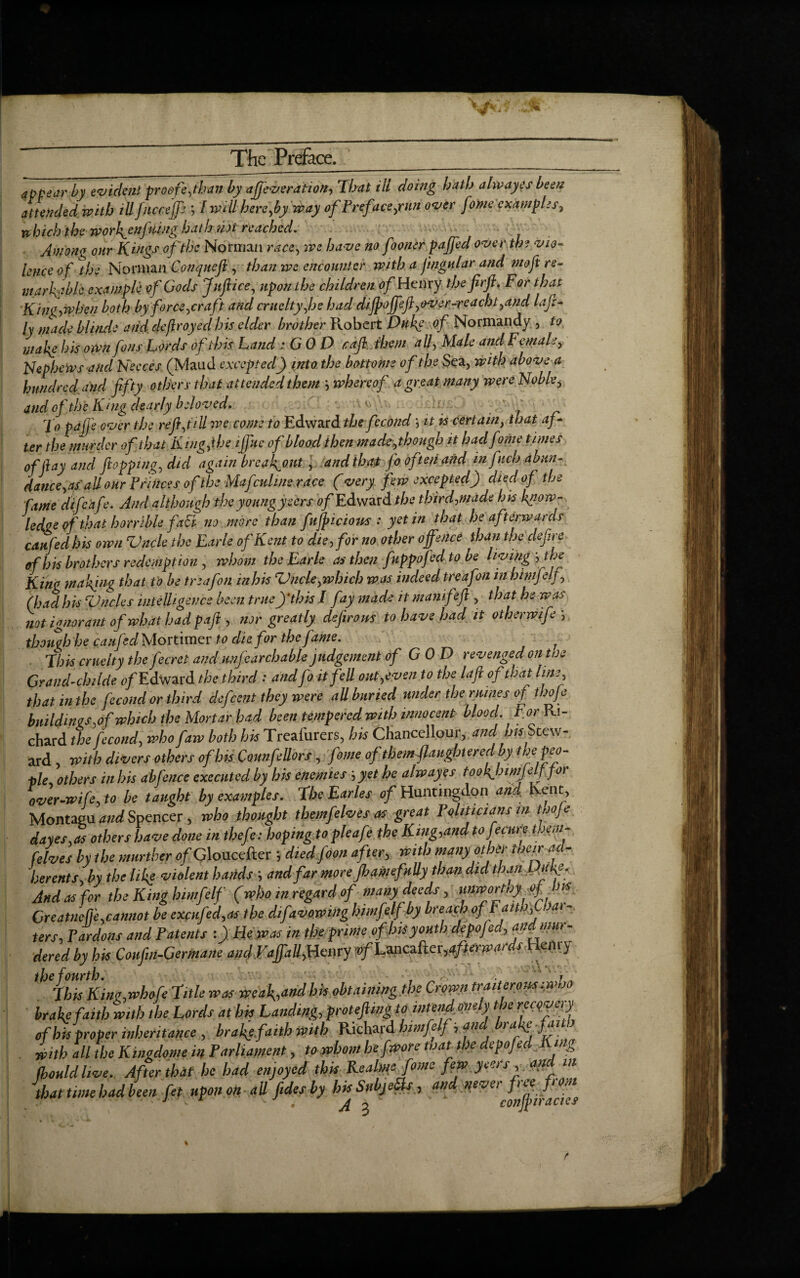 The Preface.
appear by evident proofe, than by asseveration, That ill doing hath alwayes been
attended with ill successe; I will here, by way of Preface, run over some examples,
which the work ensuing hath not reached.
Among our Kings of the Norman race, we have no sooner passed over the vio-
lence of the Norman Conquest, than we encounter with a singular and most re-
markable example of Gods Justice, upon the children of Henry the first. For that
King, when both by force, craft and cruelty, he had dispossest, over-reacht, and last-
ly made blinde and destroyed his elder brother Robert Duke of Normandy, to
make his own sons Lords of this Land: GOD cast them all, Male and Female,
Nephews and Neeces (Maud excepted) into the bottome of the Sea, with above a
hundred and fifty others that attended them; whereof a great many were Noble,
and of the King dearly beloved.
To passe over the rest, till we come to Edward the second; it is certain, that af-
ter the murder of that King, the issue of blood then made, though it had some times
of stay and stopping, did again break out; and that so often and in such abun-
dance, as all our Princes of the Masculine race (very few excepted) died of the
same disease. And although the young yeers of Edward the third, made his know-
ledge of that horrible fact no more than suspicious: yet in that he afterwards
caused his own Uncle the Earle of Kent to die, for no other offence than the desire
of his brothers redemption, whom the Earle as then supposed to be living; the
King making that to be treason in his Uncle, which was indeed treason in himself,
(had his Uncles intelligence been true) this I say made it manifest, that he was
not ignorant of what had past, nor greatly desirous to have had it otherwise;
though he caused Mortimer to die for the same.
This cruelty the secret and unsearchable judgement of GOD revenged on the
Grand-childe of Edward the third: and so it fell out, even to the last of that line,
that in the second or third descent they were all buried under the ruines of those
buildings, of which the Mortar had been tempered with innocent blood. For Ri-
chard the second, who saw both his Treasurers, his Chancellour, and his Stew-
ard, with divers others of his Counsellors, some of them slaughtered by the peo-
ple, others in his absence executed by his enemies; yet he alwayes took himself for
over-wise, to be taught by examples. The Earles of Huntingdon and Kent,
Montagu and Spencer, who thought themselves as great Politicians in those
dayes, as others have done in these: hoping to please the King, and to secure them-
selves by the murther of Gloucester; died soon after, with many other their ad-
herents, by the like violent hands; and far more shamefully than did than Duke.
And as for the King himself (who in regard of many deeds, unworthy of his
Greatnesse, cannot be excused, as the disavowing himself by breach of Faith, Char-
ters, Pardons and Patents:) He was in the prime of his youth deposed, and mur-
dered by his Cousin-Germane and Vassall, Henry of Lancaster, afterwards Henry
the fourth.
This King, whose Title was weak, and his obtaining the Crown traiterous: who
brake faith with the Lords at his Landing, protesting to intend onely the recovery
of his proper inheritance, brake faith with Richard himself, and brake faith
with all the Kingdome in Parliament, to whom he swore that the deposed King
should live. After that he had enjoyed this Realme some few yeers, and in
that time had been set upon on all sides by his Subjects, and never free from
A 3 conspiracies